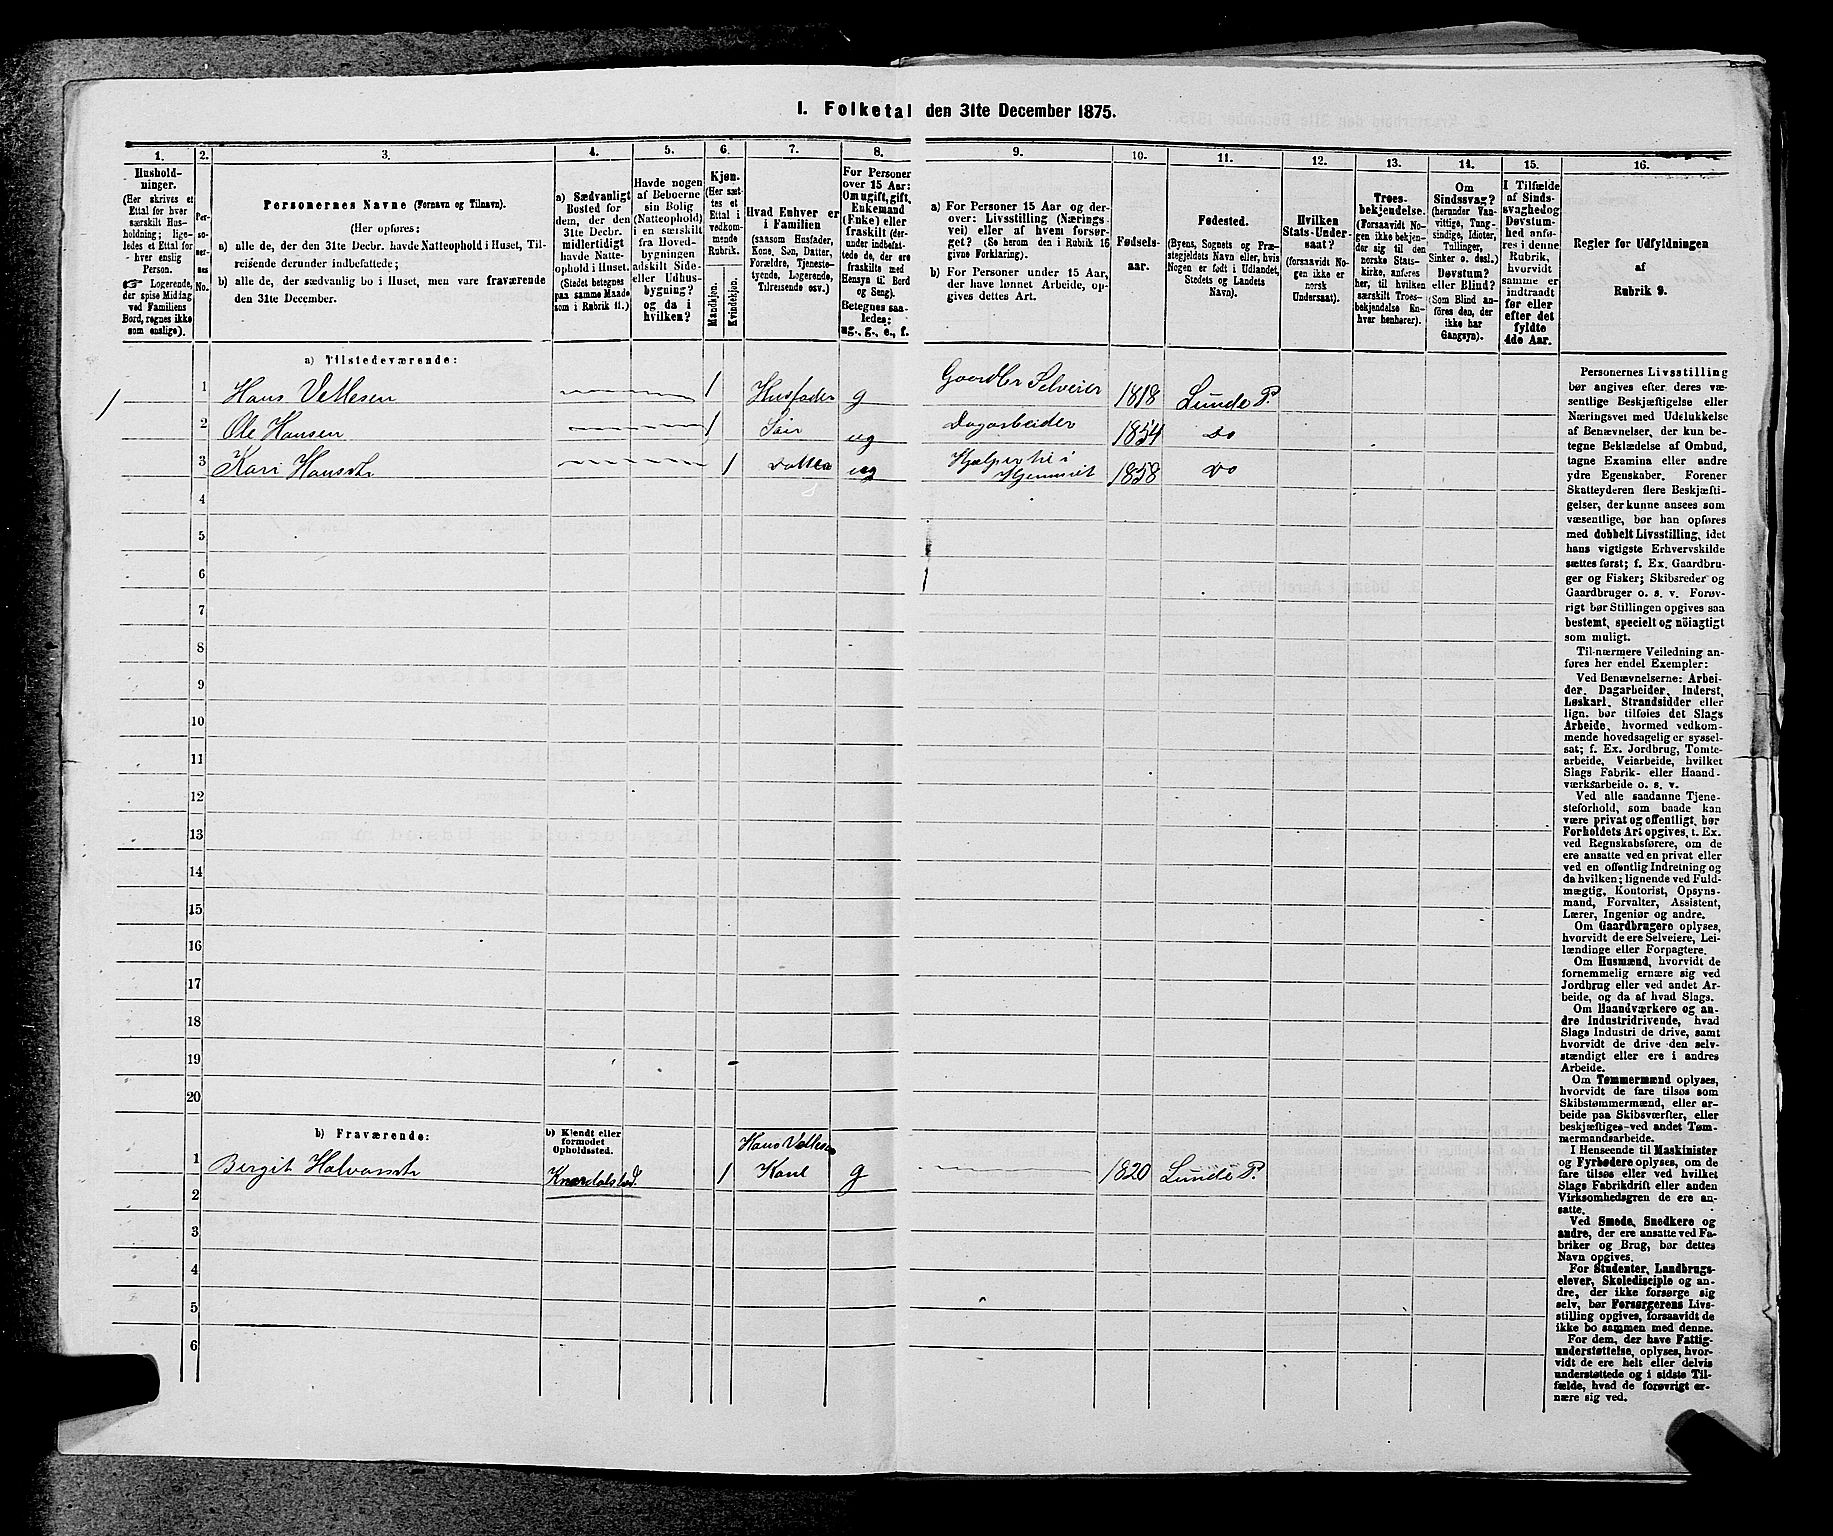 I. Folketal den 31te December 1875.
1.
2.
3.
4.
5.
6.
7.
8.
9.
10.
11.
12.
13.
14.
15.
16.
Hushold-
ninger.
(Her skrives et
Ettal for hver
særskilt Hus-
holdning; lige-
ledes et Ettal for
hver enslig
Person.
☞ Logerende,
der spise Middag
ved Familiens
Bord, regnes ikke
som enslige).
Per-
so-
ner-
nes
No.
Personernes Navne (Fornavn og Tilnavn).
(Her opføres:
a) alle de, der den 31te Decbr. havde Natteophold i Huset, Til-
reisende derunder indbefattede;
b) alle de, der sædvanlig bo i Huset, men vare fraværende
den 31te December.
a) Sædvanligt
Bosted for
dem, der den
31te Decbr.
midlertidigt
havde Natte-
ophold i Huset.
(Stedet betegnes
paa samme Maade
som i Rubrik 11.)
Havde nogen
af Beboerne
sin Bolig
(Natteophold)
i en særskilt
fra Hoved-
bygningen
adskilt Side-
eller Udhus-
bygning?
og da i
hvilken?
Kjøn.
(Her sæt-
tes et
Ettal i
vedkom-
mende
Rubrik.
Mandkjøn.
Kvindekjøn.
Hvad Enhver er
i Familien
(saasom Husfader,
Kone, Søn, Datter,
Forældre, Tjeneste-
tyende, Logerende,
Tilreisende osv.)
For Personer
over 15 Aar:
Om ugift, gift,
Enkemand
(Enke) eller
fraskilt (der-
under indbefat-
tede de, der ere
fraskilte med
Hensyn til Bord
og Seng).
Betegnes saa-
ledes:
ug., g., e., f.
a) For Personer 15 Aar og der-
over: Livsstilling (Nærings-
vei) eller af hvem forsør-
get? (Se herom den i Rubrik 16
givne Forklaring).
b) For Personer under 15 Aar,
der have lønnet Arbeide, op-
gives dettes Art.
Fødsels-
aar.
Fødested.
(Byens, Sognets og Præ-
stegjeldets Navn eller, hvis
Nogen er født i Udlandet,
Stedets og Landets
Navn).
Hvilken
Stats-Under-
saat?
(forsaavidt No-
gen ikke er
norsk
Undersaat).
Troes-
bekjendelse.
(Forsaavidt No-
gen ikke bekjen-
der sig til den
norske Stats-
kirke, anføres
her, til hvilken
særskilt Troes-
bekjendelse En-
hver henhører).
Om
Sindssvag?
(herunder Van-
vittige, Tung-
sindige, Idioter,
Tullinger,
Sinker o. desl.)
Døvstum?
eller Blind?
(Som Blind an-
føres den, der
ikke har
Gangsyn).
I Tilfælde
af Sinds-
svaghed og
Døvstum-
hed anfø-
res i denne
Rubrik,
hvorvidt
samme er
indtraadt
før eller
efter det
fyldte
4de Aar.
Regler for Udfyldningen
af
Rubrik 9.
a) Tilstedeværende:
1 Hans Vettesen 1 Husfader g Gaardbr Selveier 1818 Lunde P.
1
2 Ole Hansen 1 Søn ug Dagarbeider 1854 Do
3 Kari Hansdt 1 datter ug Hjælper til i
Hjemmet 1858 Do
4
5
6
7
8
9
10
11
12
13
14
15
16
17
18
19
20
b) Fraværende:
b) Kjendt eller
formodet
Opholdssted.
Hans Vettesen
1 Birgit Halvorsdt Knardalstrd. 1 Kone g 1820 Lunde P.
2
3
4
5
6
Personernes Livsstilling
bør angives efter deres væ-
sentlige Beskjæftigelse eller
Næringsvei med Udelukkelse
af Benævnelser, der kun be-
tegne Beklædelse af Ombud,
tagne Examina eller andre
ydre Egenskaber. Forener
Skatteyderen flere Beskjæfti-
gelser, der kunne ansees som
væsentlige, bør han opføres
med dobbelt Livsstilling, idet
hans vigtigste Erhvervskilde
sættes først; f. Ex. Gaardbru-
ger og Fisker; Skibsreder og
Gaardbruger o. s. v. Forøv-
rigt bør Stillingen opgives saa
bestemt, specielt og nöiagtigt
som muligt.
Til nærmere Veiledning an-
føres her endel Exempler:
Ved Benævnelserne: Arbei-
der, Dagarbeider, Inderst,
Løskarl, Strandsidder eller
lign. bør tilføies det Slags
Arbeide, hvormed vedkom-
mende hovedsagelig er syssel-
sat; f. Ex. Jordbrug, Tomte-
arbeide, Veiarbeide, hvilket
Slags Fabrik- eller Haand-
værksarbeide o. s. v.
Ved alle saadanne Tjene-
steforhold, som baade kan
være privat og offentligt, bør
Forholdets Art opgives, t. Ex.
ved Regnskabsførere, om de
ere ansatte ved en privat eller
ved en offentlig Indretning og
da hvilken; lignende ved Fuld-
mægtig, Kontorist, Opsyns-
mand, Forvalter, Assistent,
Lærer, Ingeniør og andre.
Om Gaardbrugere oplyses,
hvorvidt de ere Selveiere, Lei-
lændinge eller Forpagtere.
Om Husmænd, hvorvidt de
fornemmelig ernære sig ved
Jordbrug eller ved andet Ar-
beide, og da af hvad Slags.
Om Haandværkere og an-
dre Industridrivende, hvad
Slags Industri de drive, samt
hvorvidt de drive den selv-
stændigt eller ere i andres
Arbeide.
Om Tømmermænd oplyses,
hvorvidt de fare tilsøs som
Skibstømmermænd, eller ar-
beide paa Skibsværfter, eller
beskjæftiges ved andet Tøm-
mermandsarbeide.
I Henseende til Maskinister
og Fyrbødere oplyses, om de
fare tilsøs eller ved hvilket
Slags Fabrikdrift eller anden
Virksomhedsgren de ere an-
satte.
Ved Smede, Snedkere og
andre, der ere ansatte ved Fa-
briker og Brug, bør dettes
Navn opgives.
For Studenter, Landbrugs-
elever, Skoledisciple og an-
dre, der ikke forsørge sig
selv, bør Forsørgerens Livs-
stilling opgives, forsaavidt de
ikke bo sammen med denne.
For dem, der have Fattig-
understøttelse, oplyses, hvor-
vidt de ere helt eller delvis
understøttede og i sidste Til-
fælde, hvad de forøvrigt er-
nære sig ved.